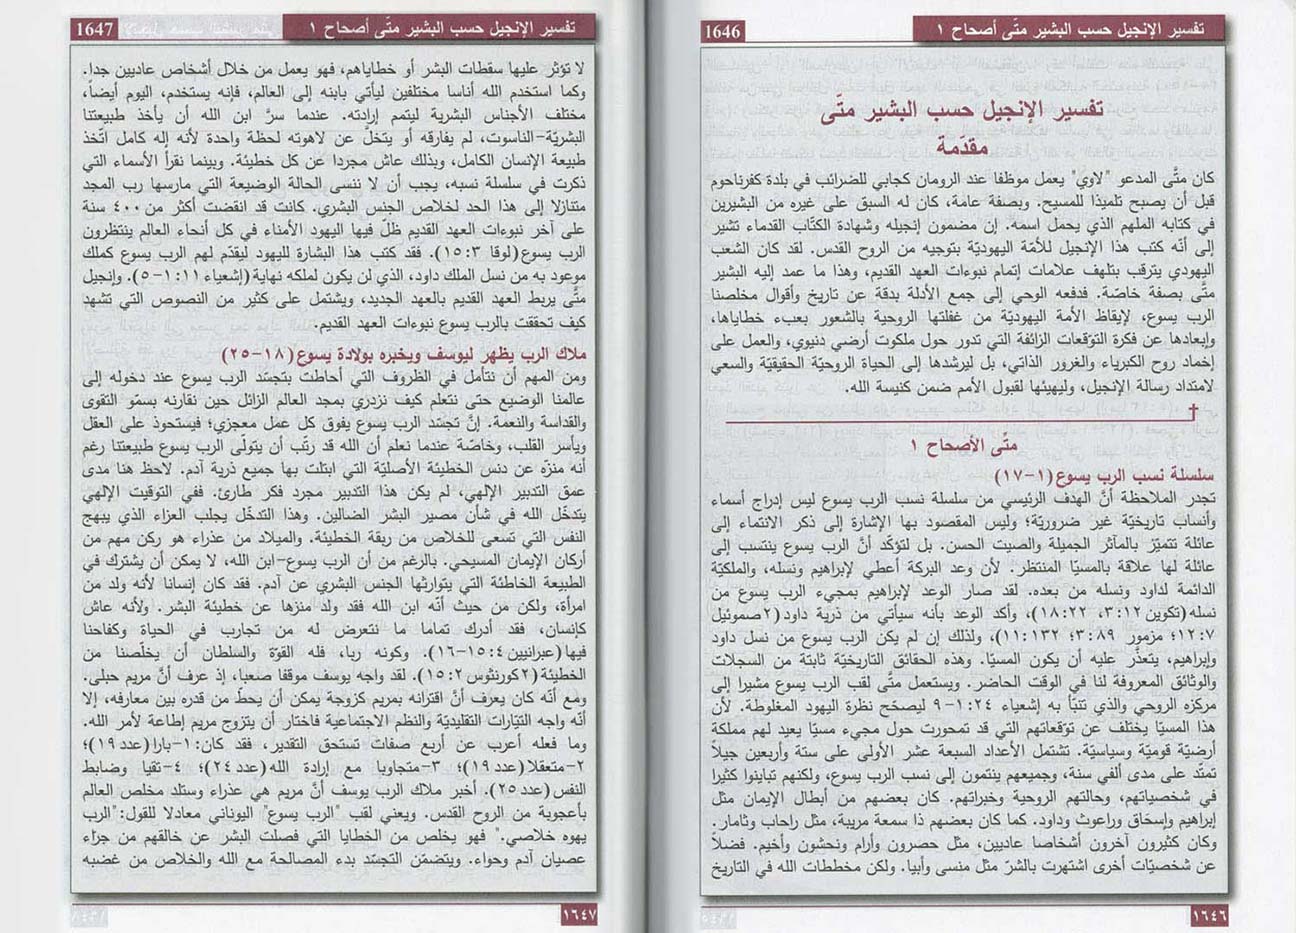 تفسير الإنجيل حسب البشير متّى أصحاح ١
1646
تفسير الإنجيل حسب البشير متّى
مقدّمة
كان متّى المدعو "لاوي" يعمل موظفا عند الرومان كجابي للضرائب في بلدة كفرناحوم
قبل أن يصبح تلميذا للمسيح. وبصفة عامة، كان له السبق على غيره من البشيرين
في كتابه الملهم الذي يحمل اسمه. إن مضمون إنجيله وشهادة الكتّاب القدماء تشير
إلى أنّه كتب هذا الإنجيل للأمّة اليهوديّة بتوجيه من الروح القدس. لقد كان الشعب
اليهودي يترقب بتلهف علامات إتمام نبوءات العهد القديم، وهذا ما عمد إليه البشير
متّى بصفة خاصّة. فدفعه الوحي إلى جمع الأدلة بدقة عن تاريخ وأقوال مخلصنا
الرب يسوع، لإيقاظ الأمة اليهوديّة من غفلتها الروحية بالشعور بعبء خطاياها،
وإبعادها عن فكرة التوّقعات الزائفة التي تدور حول ملكوت أرضي دنيوي، والعمل على
إخماد روح الكبرياء والغرور الذاتي، بل ليرشدها إلى الحياة الروحيّة الحقيقيّة والسعي
لامتداد رسالة الإنجيل، وليهيئها لقبول الأمم ضمن كنيسة الله.
متّى الأصحاح ١
سلسلة نسب الرب يسوع (١-١٧)
تجدر الملاحظة أنَّ الهدف الرئيسي من سلسلة نسب الرب يسوع ليس إدراج أسماء
وأنساب تاريخيّة غير ضروريّة؛ وليس المقصود بها الإشارة إلى ذكر الانتماء إلى
عائلة تتميّز بالمآثر الجميلة والصيت الحسن. بل لتؤكّد أنَّ الرب يسوع ينتسب إلى
عائلة لها علاقة بالمسيّا المنتظر. لأن وعد البركة أعطي لإبراهيم ونسله، والملكيّة
الدائمة لداود ونسله من بعده. لقد صار الوعد لإبراهيم بمجيء الرب يسوع من
نسله (تكوين ٣:١٢، ١٨:٢٢)، وأكد الوعد بأنه سيأتي من ذرية داود (٢صموئيل
١٢:٧؛ مزمور ٣:٨٩؛ ١١:١٣٢)، ولذلك إن لم يكن الرب يسوع من نسل داود
وإبراهيم، يتعذّر عليه أن يكون المسيّا. وهذه الحقائق التاريخيّة ثابتة من السجلات
والوثائق المعروفة لنا في الوقت الحاضر. ويستعمل متّى لقب الرب يسوع مشيرا إلى
مركزه الروحي والذي تنبّأ به إشعياء ١:٢٤- ٩ ليصحّح نظرة اليهود المغلوطة. لأن
هذا المسيّا يختلف عن توّقعاتهم التي قد تمحورت حول مجيء مسيّا يعيد لهم مملكة
أرضيّة قوميّة وسياسيّة. تشتمل الأعداد السبعة عشر الأولى على ستة وأربعين جيلاً
تمتدّ على مدى ألفي سنة، وجميعهم ينتمون إلى نسب الرب يسوع، ولكنهم تباينوا كثيرا
في شخصياتهم، وحالتهم الروحية وخبراتهم. كان بعضهم من أبطال الإيمان مثل
إبراهيم وإسحاق وراعوث وداود. كما كان بعضهم ذا سمعة مريبة، مثل راحاب وثامار.
وكان كثيرون آخرون أشخاصا عاديين، مثل حصرون وأرام ونحشون وأخيم. فضلاً
عن شخصيّات أخرى اشتهرت بالشرّ مثل منسى وأبيا. ولكن مخططات الله في التاريخ
١٦٤٦
تفسير الإنجيل حسب البشير متّى أصحاح ١
1647
لا تؤثر عليها سقطات البشر أو خطاياهم، فهو يعمل من خلال أشخاص عاديين جدا.
وكما استخدم الله أناسا مختلفين ليأتي بابنه إلى العالم، فإنه يستخدم، اليوم أيضاً،
مختلف الأجناس البشرية ليتمم إرادته. عندما سرَّ ابن الله أن يأخذ طبيعتنا
البشريّة-الناسوت، لم يفارقه أو يتخلَّ عن لاهوته لحظة واحدة لأنه إله كامل اتّخذ
طبيعة الإنسان الكامل، وبذلك عاش مجردا عن كل خطيئة. وبينما نقرأ الأسماء التي
ذكرت في سلسلة نسبه، يجب أن لا ننسى الحالة الوضيعة التي مارسها رب المجد
متنازلا إلى هذا الحد لخلاص الجنس البشري. كانت قد انقضت أكثر من ٤٠٠ سنة
على آخر نبوءات العهد القديم ظلّ فيها اليهود الأمناء في كل أنحاء العالم ينتظرون
الرب يسوع (لوقا ١٥:٣). فقد كتب هذا البشارة لليهود ليقدّم لهم الرب يسوع كملك
موعود به من نسل الملك داود، الذي لن يكون لملكه نهاية (إشعياء ١:١١-٥). وإنجيل
متّى يربط العهد القديم بالعهد الجديد، ويشتمل على كثير من النصوص التي تشهد
كيف تحققت بالرب يسوع نبوءات العهد القديم.
ملاك الرب يظهر ليوسف ويخبره بولادة يسوع (١٨-٢٥)
ومن المهم أن نتأمل في الظروف التي أحاطت بتجسّد الرب يسوع عند دخوله إلى
عالمنا الوضيع حتى نتعلم كيف نزدري بمجد العالم الزائل حين نقارنه بسمّو التقوى
والقداسة والنعمة. إنَّ تجسّد الرب يسوع يفوق كل عمل معجزي؛ فيستحوذ على العقل
ويأسر القلب، وخاصّة عندما نعلم أن الله قد رتّب أن يتولّى الرب يسوع طبيعتنا رغم
أنه منزّه عن دنس الخطيئة الأصليّة التي ابتلت بها جميع ذرية آدم. لاحظ هنا مدى
عمق التدبير الإلهي، لم يكن هذا التدبير مجرد فكر طارئ. ففي التوقيت الإلهي
يتدخّل الله في شأن مصير البشر الضالين. وهذا التدخّل يجلب العزاء الذي يبهج
النفس التي تسعى للخلاص من ربقة الخطيئة. والميلاد من عذراء هو ركن مهم من
أركان الإيمان المسيحي. بالرغم من أن الرب يسوع-ابن الله، لا يمكن أن يشترك في
الطبيعة الخاطئة التي يتوارثها الجنس البشري عن آدم. فقد كان إنسانا لأنه ولد من
امرأة، ولكن من حيث أنّه ابن الله فقد ولد منزها عن خطيئة البشر. ولأنه عاش
كإنسان، فقد أدرك تماما ما نتعرض له من تجارب في الحياة وكفاحنا
فيها (عبرانيين ١٥:٤-١٦). وكونه ربا، فله القوّة والسلطان أن يخلّصنا من
الخطيئة (٢كورنثوس ١٥:٢). لقد واجه يوسف موقفا صعبا، إذ عرف أنَّ مريم حبلى.
ومع أنّه كان يعرف أنَّ اقترانه بمريم كزوجة يمكن أن يحطّ من قدره بين معارفه، إلا
أنّه واجه التيّارات التقليديّة والنظم الاجتماعية فاختار أن يتزوج مريم إطاعة لأمر الله.
وما فعله أعرب عن أربع صفات تستحق التقدير، فقد كان: ١-بارا (عدد ١٩)؛
٢-متعقلا (عدد ١٩)؛ ٣-متجاوبا مع إرادة الله (عدد ٢٤)؛ ٤-تقيا وضابط
النفس (عدد ٢٥). أخبر ملاك الرب يوسف أنَّ مريم هي عذراء وستلد مخلص العالم
بأعجوبة من الروح القدس. ويعني لقب "الرب يسوع" اليوناني معادلا للقول: "الرب
يهوه خلاصي." فهو يخلص من الخطايا التي فصلت البشر عن خالقهم من جرّاء
عصيان آدم وحواء. ويتضمّن التجسّد بدء المصالحة مع الله والخلاص من غضبه
١٦٤٧